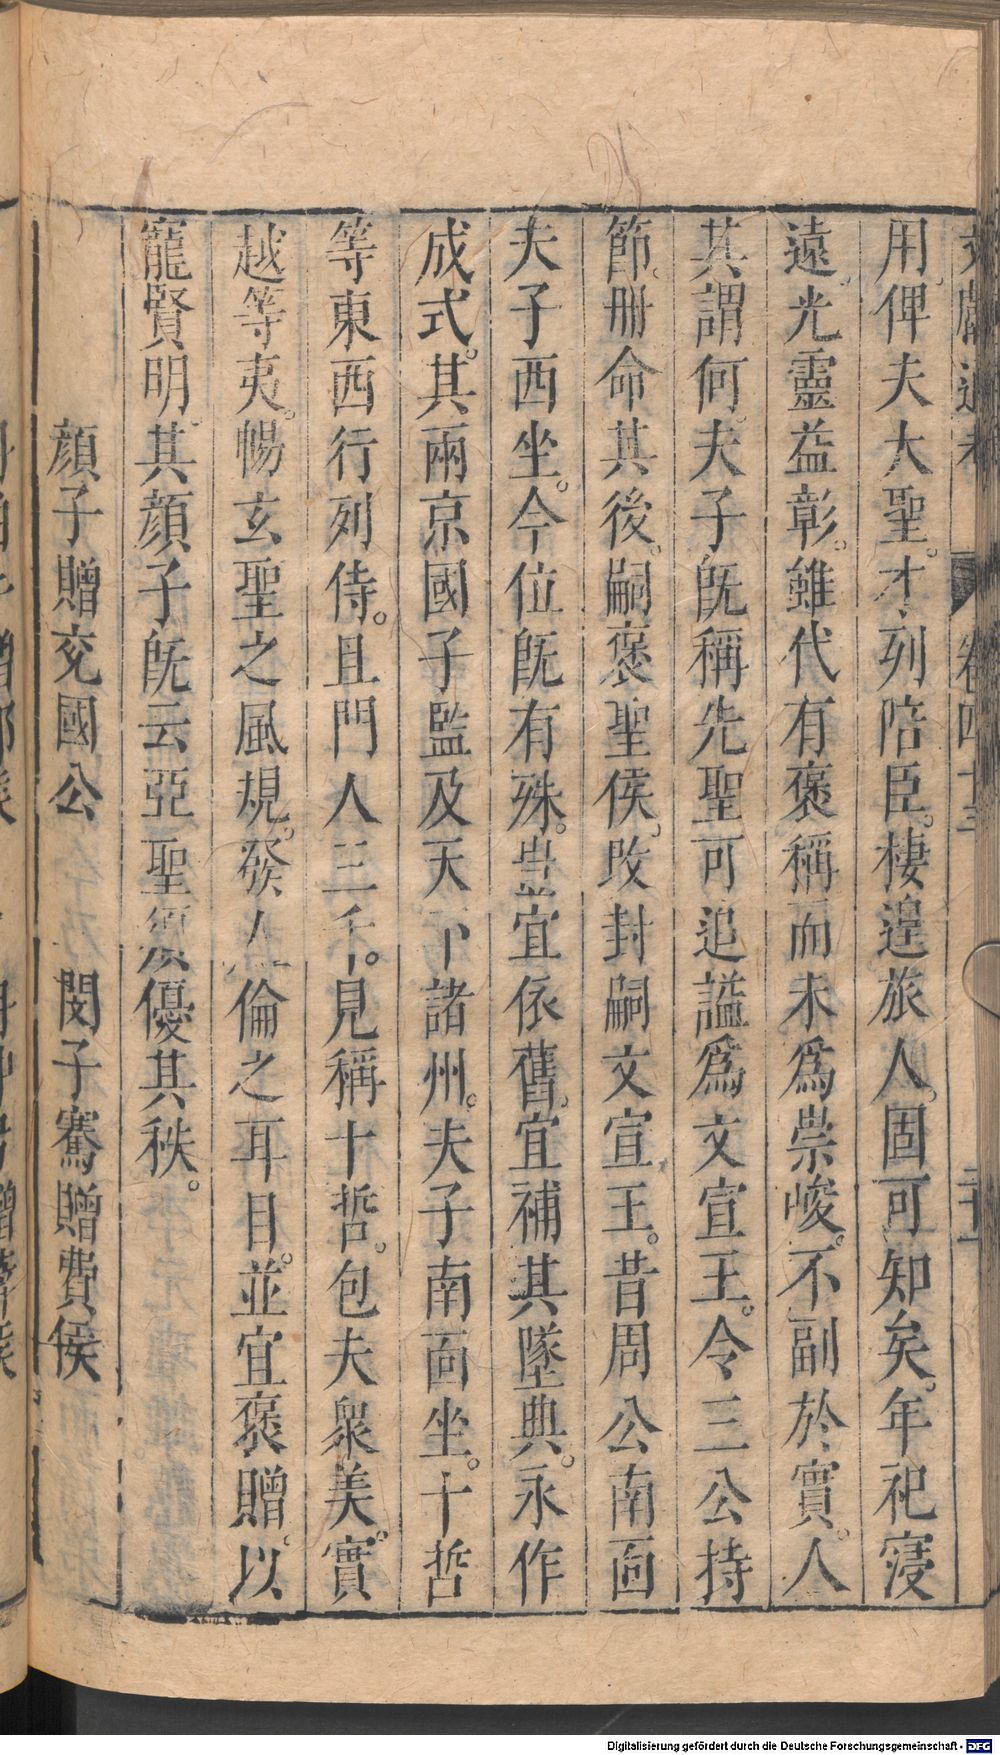 文獻通考 卷四十三 二十一
用。俾夫大聖。才列陪臣。棲遑旅人。固可知矣。年祀寖
遠。光靈益彰。雖代有褒稱。而未爲崇峻。不副於實。人
其謂何。夫子旣稱先聖。可追謚爲文宣王。令三公持
節。册命其後。嗣褒聖侯。改封嗣文宣王。昔周公南面
夫子西坐。今位旣有殊。豈宜依舊。宜補其墜典。永作
成式。其兩京國子監及天下諸州。夫子南面坐。十哲
等東西行列侍。且門人三千。見稱十哲。包夫衆美。實
越等夷。暢玄聖之風規。發人倫之耳目。並宜褒贈。以
寵賢明。其顏子旣云亞聖。須優其秩。
顏子贈兗國公 閔子騫贈費侯
Digitalisierung gefördert durch die Deutsche Forschungsgemeinschaft - DFG